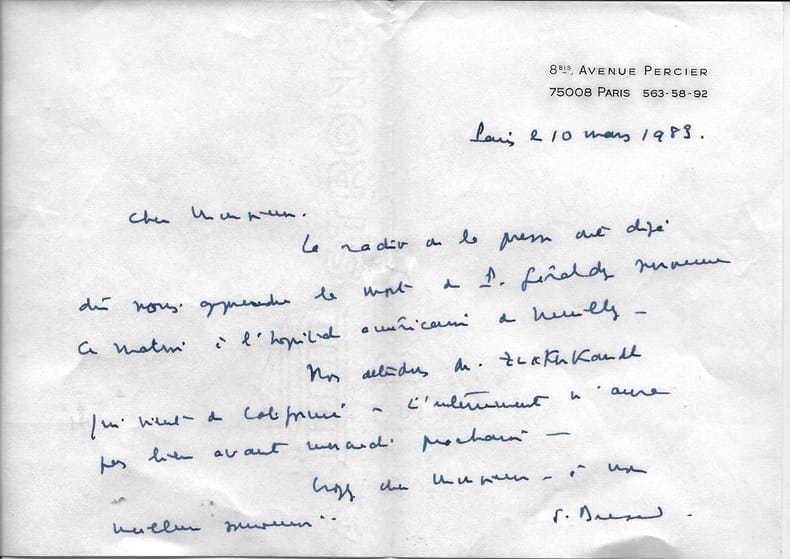 8BIS, AVENUE PERCIER
75008 PARIS 563-58-92
Paris le 10 mars 1983.
Cher Monsieur.
La radio et la presse ont déjà
dû vous apprendre la mort de P. Géraldy survenue
ce matin à l'hôpital américain de Neuilly –
Nous attendons Mr. Zuckerkandl
qui vient de Californie – L'enterrement n'aura
pas lieu avant mercredi prochain –
Croyez cher Monsieur – à mon
meilleur souvenir.